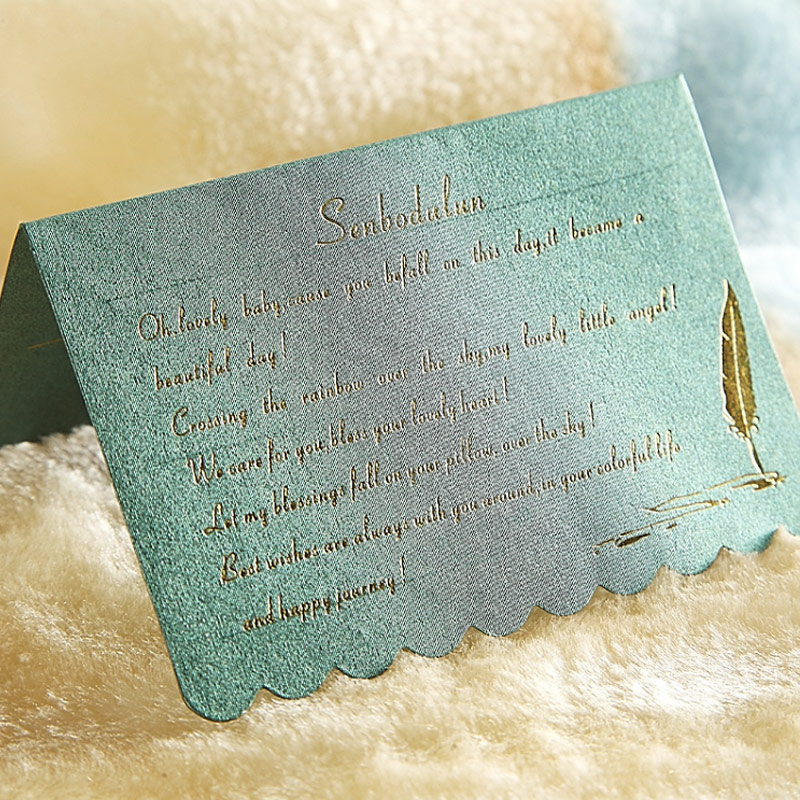 Senbodulun
Oh,lovely baby,cause you befall on this day,it became a
beautiful day!
Crossing the rainbow over the sky,my lovely little angel!
We care for you,bless your lovely heart!
Let my blessings fall on your pillow, over the sky!
Best wishes are always with you around,in your colorful life
and happy journey!